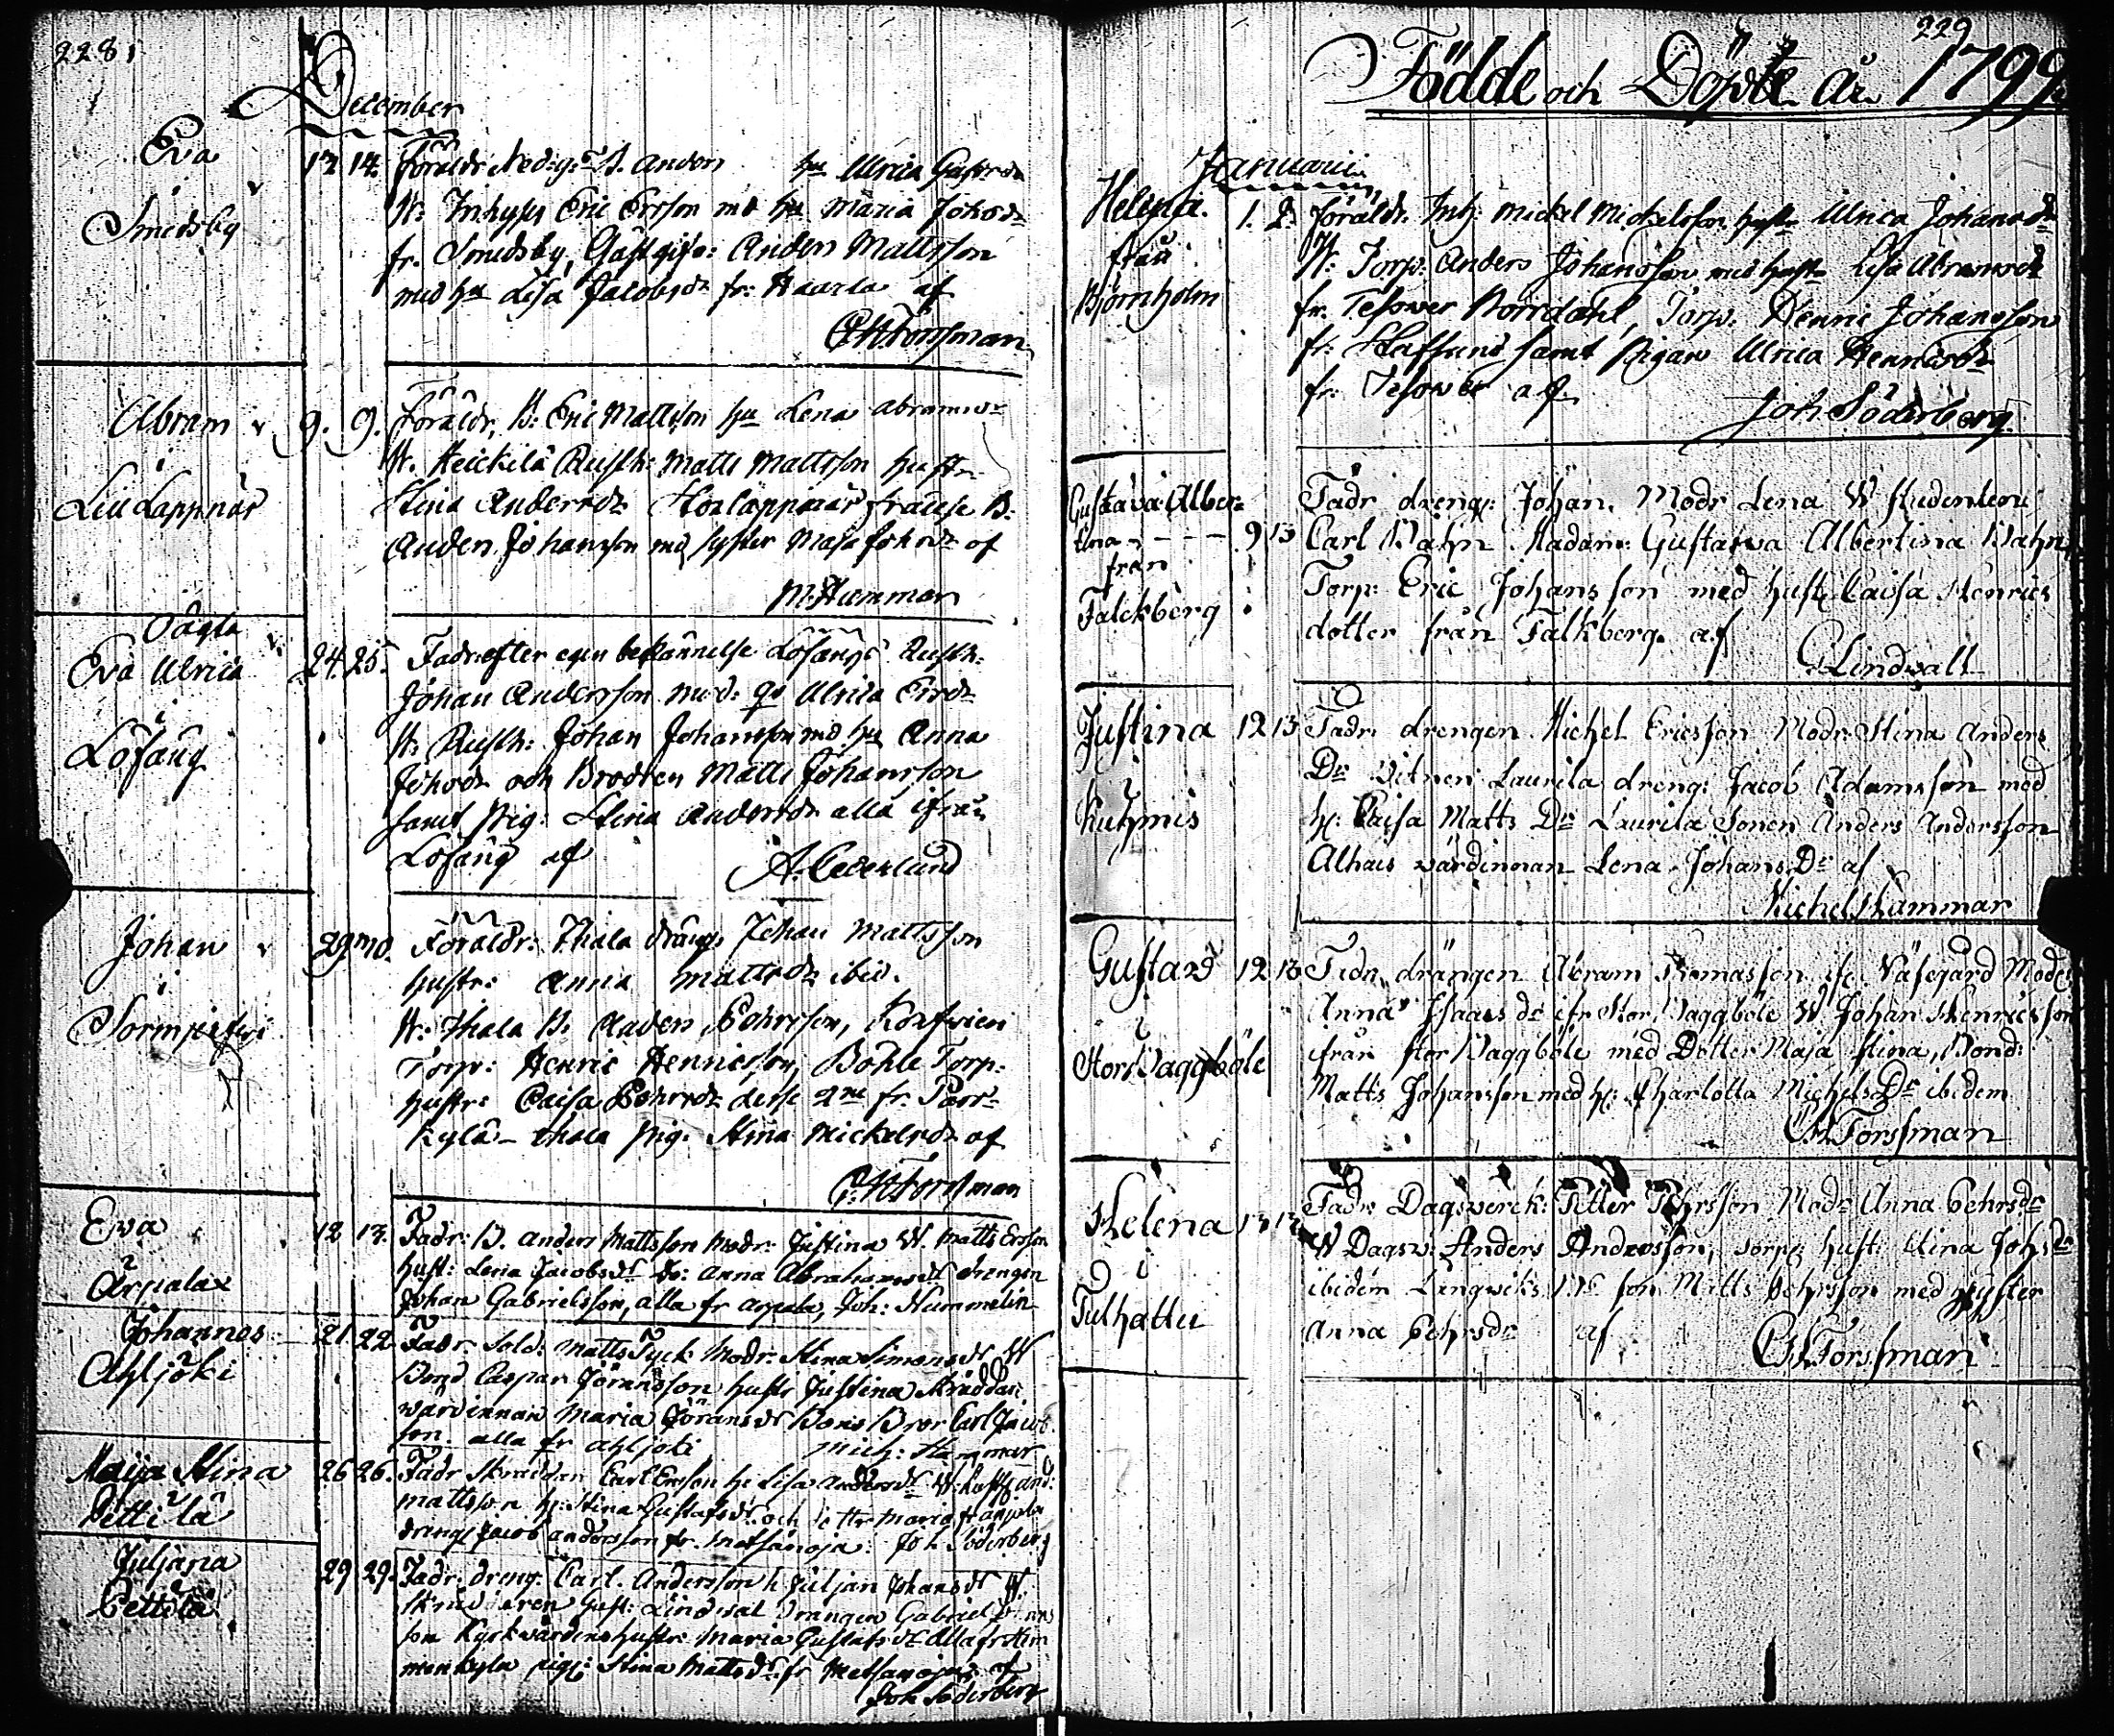 228
December
Eva
i
Smedsby
13 14. Föräldr. Ned:g: B. Anders hu Ulrica Gustsdr
W: Inhyses Eric Ersson md hu Maria Johsdr
fr. Smedsby, Gästgifv: Anders Mattsson
med hu Lisa Jacobsdr fr: Haarla af
CHForssman
Abram
i
Lill Lappnäs
9. 9. Föräldr. B: Eric Mattsson hu Lena Abramsdr
W. Heickilä Rusth: Matts Mattsson hustr
Stina Andersdr Storlappnäs B:
Anders Johansson md syster Maja Johsdr af
M: Hammar
Oägta
Eva Ulrica
i
Löfäng
24. 25. Fadr: efter egen bekännelse Löfängs Rusth:
Johan Andersson mod: Ulrica Ersdr
W: Rusth: Johan Johansson md hu Anna
Johsdr och Brodren Matts Johansson
samt Pig: Stina Andersdr alla ifrån
Löfäng af A. Cederlund
Johan
i
Sormjerfvi
29 30. Föräldr: Thala dräng Johan Mattsson
hustr: Anna Mattsdr ibid.
W: Thala B. Anders Pehrsson,
Torp: Henric Henricsson, Böhle Torp:
hustr: Caisa Pehrsdr desse 2ne fr. Parr-
kylä - thala Pig. Stina Mickelsdr af
CHForssman
Eva
Ärpalax
12 13. Fadr: B. Anders Mattsson Modr: Justina W. Matts Ersson
Hust: Lena Jacobsdr Anna Abrahamsdr drengen
Johan Gabrielsson, alla fr Arpala, Joh: Hummelin
Johannes
Ahljoki
21 22. Fadr. Sold: Matts Tyck Modr. Stina Simonsdr W
Bond Caspar Jöransson hustr Justina Skräddar
wärdinnan Maria Jöransdr Bonis Bror Carl Jacob
son. alla fr Ahljoki Mich: Hammar
Maija Stina
Pettilä
26 26. Fadr Skrädden Carl Ersson h: Lisa Andersdr W: And:
Mattsson h: Stina Gustafsdr och dottr Maria fr Arpala
dreng: Jacob Andersson fr. Metsänoja. Joh Söderberg
Juljana
Pettilä
29 29. Fadr. Dreng. Carl. Andersson h Juljan Johansdr W.
hust: Lindwal drängen Gabriel
son Kyrkvärdens hustr: Maria Gustafsdr Alla fr Him
menkylä pig: Stina Mattsdr fr Metsänoja af
Joh Söderberg
229
Födde och Döpte År 1799
Januarii
Helena
från
Björnholm
1. 2. Föräldr. Inh: Mickel Mickelsson hustr Ulrica Johansdr
W: Torp: Anders Johansson med hustr Lisa Abramsdr
fr. Tesower Norrdahl, Torp: Henric Johansson
fr: Staffsund samt Pigan Ulrica Henricsdr
fr: Tesower af
Joh Söderberg
Gustava Alber-
tina
från
Falckberg
9 13 Fadr dreng: Johan, Modr Lena W Studenten
Carl Wahn Madam: Gustawa Albertina Wahn
Torp: Eric Johansson med hustr Caisa Henrics
dotter från Falkberg. af
G Lindwall
Justina
i
Kuhmis
12 13 Fadr. drengen Michel Ericsson Modr: Stina Anders
Dr Vitnen Laurila dreng: Jacob Adamsson med
h: Caisa Matts Dr Laurila Sonen Anders Andersson
Alhais värdinnan Lena Johans Dr af
Michel Hammar
Gustav
i
Stor Daggböle
12 13 Fadr, drängen Abram Thomasson ifr Näsegård Moder
Anna Isaacs dr ifr Stor Daggböle W Johan Henricsson
ifrån Stor Daggböle med Dotter Maja Stina, Bond:
Matts Johansson med h: Charlotta Michels Dr ibidem
CHForssman
Helena
i
Tulhattu
13 13 Fadr Dagsverck: Petter Pehrsson Modr Anna Pehrsdr
W Dagsv: Anders Andersson, Torp: hust: Stina Johsdr
ibidem Långwiks B: son Matts Pehrsson med Syster
Anna Pehrsdr af
CHForssman